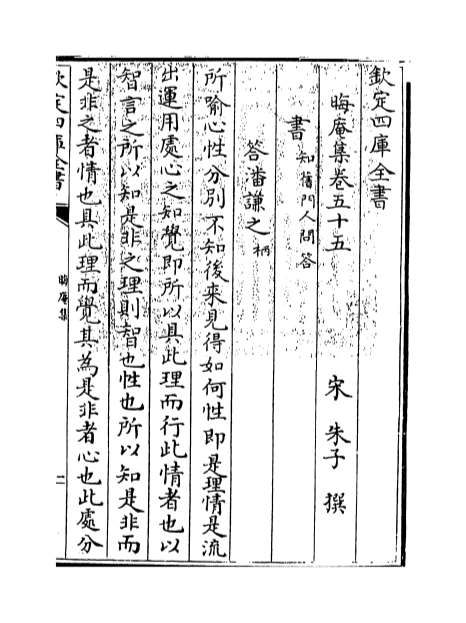 欽定四庫全書
晦庵集卷五十五
宋 朱子 撰
書 知舊門人問答
答潘謙之柄
所喻心性分別不知後來見得如何性即是理情是流
出運用處心之知覺即所以具此理而行此情者也以
智言之所以知是非之理則智也性也所以知是非而
是非之者情也具此理而覺其為是非者心也此處分
欽定四庫全書
晦庵集